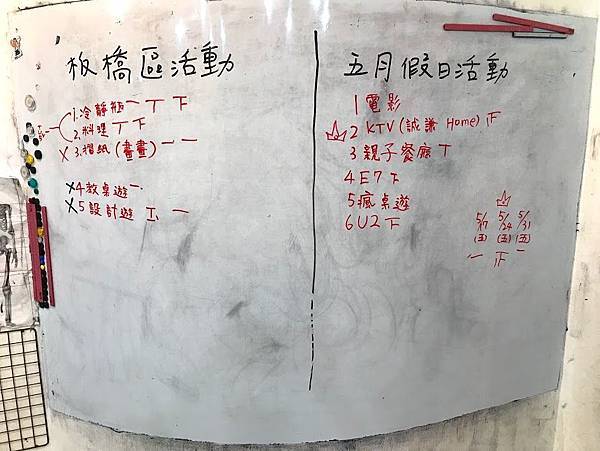 板橋區活動
1.冷靜瓶 一 丅 下
2.料理 丅 下
X 3.摺紙(畫畫) 一 一
X 4教桌遊 一
X 5設計遊 一
五月假日活動
1電影
2 KTV(誠謙 Home) 正
3親子餐廳 丅
4 E7 下
5瘋桌遊
6 U2 下
5/17 5/24 5/31
(五) (五) (五)
一 正 一